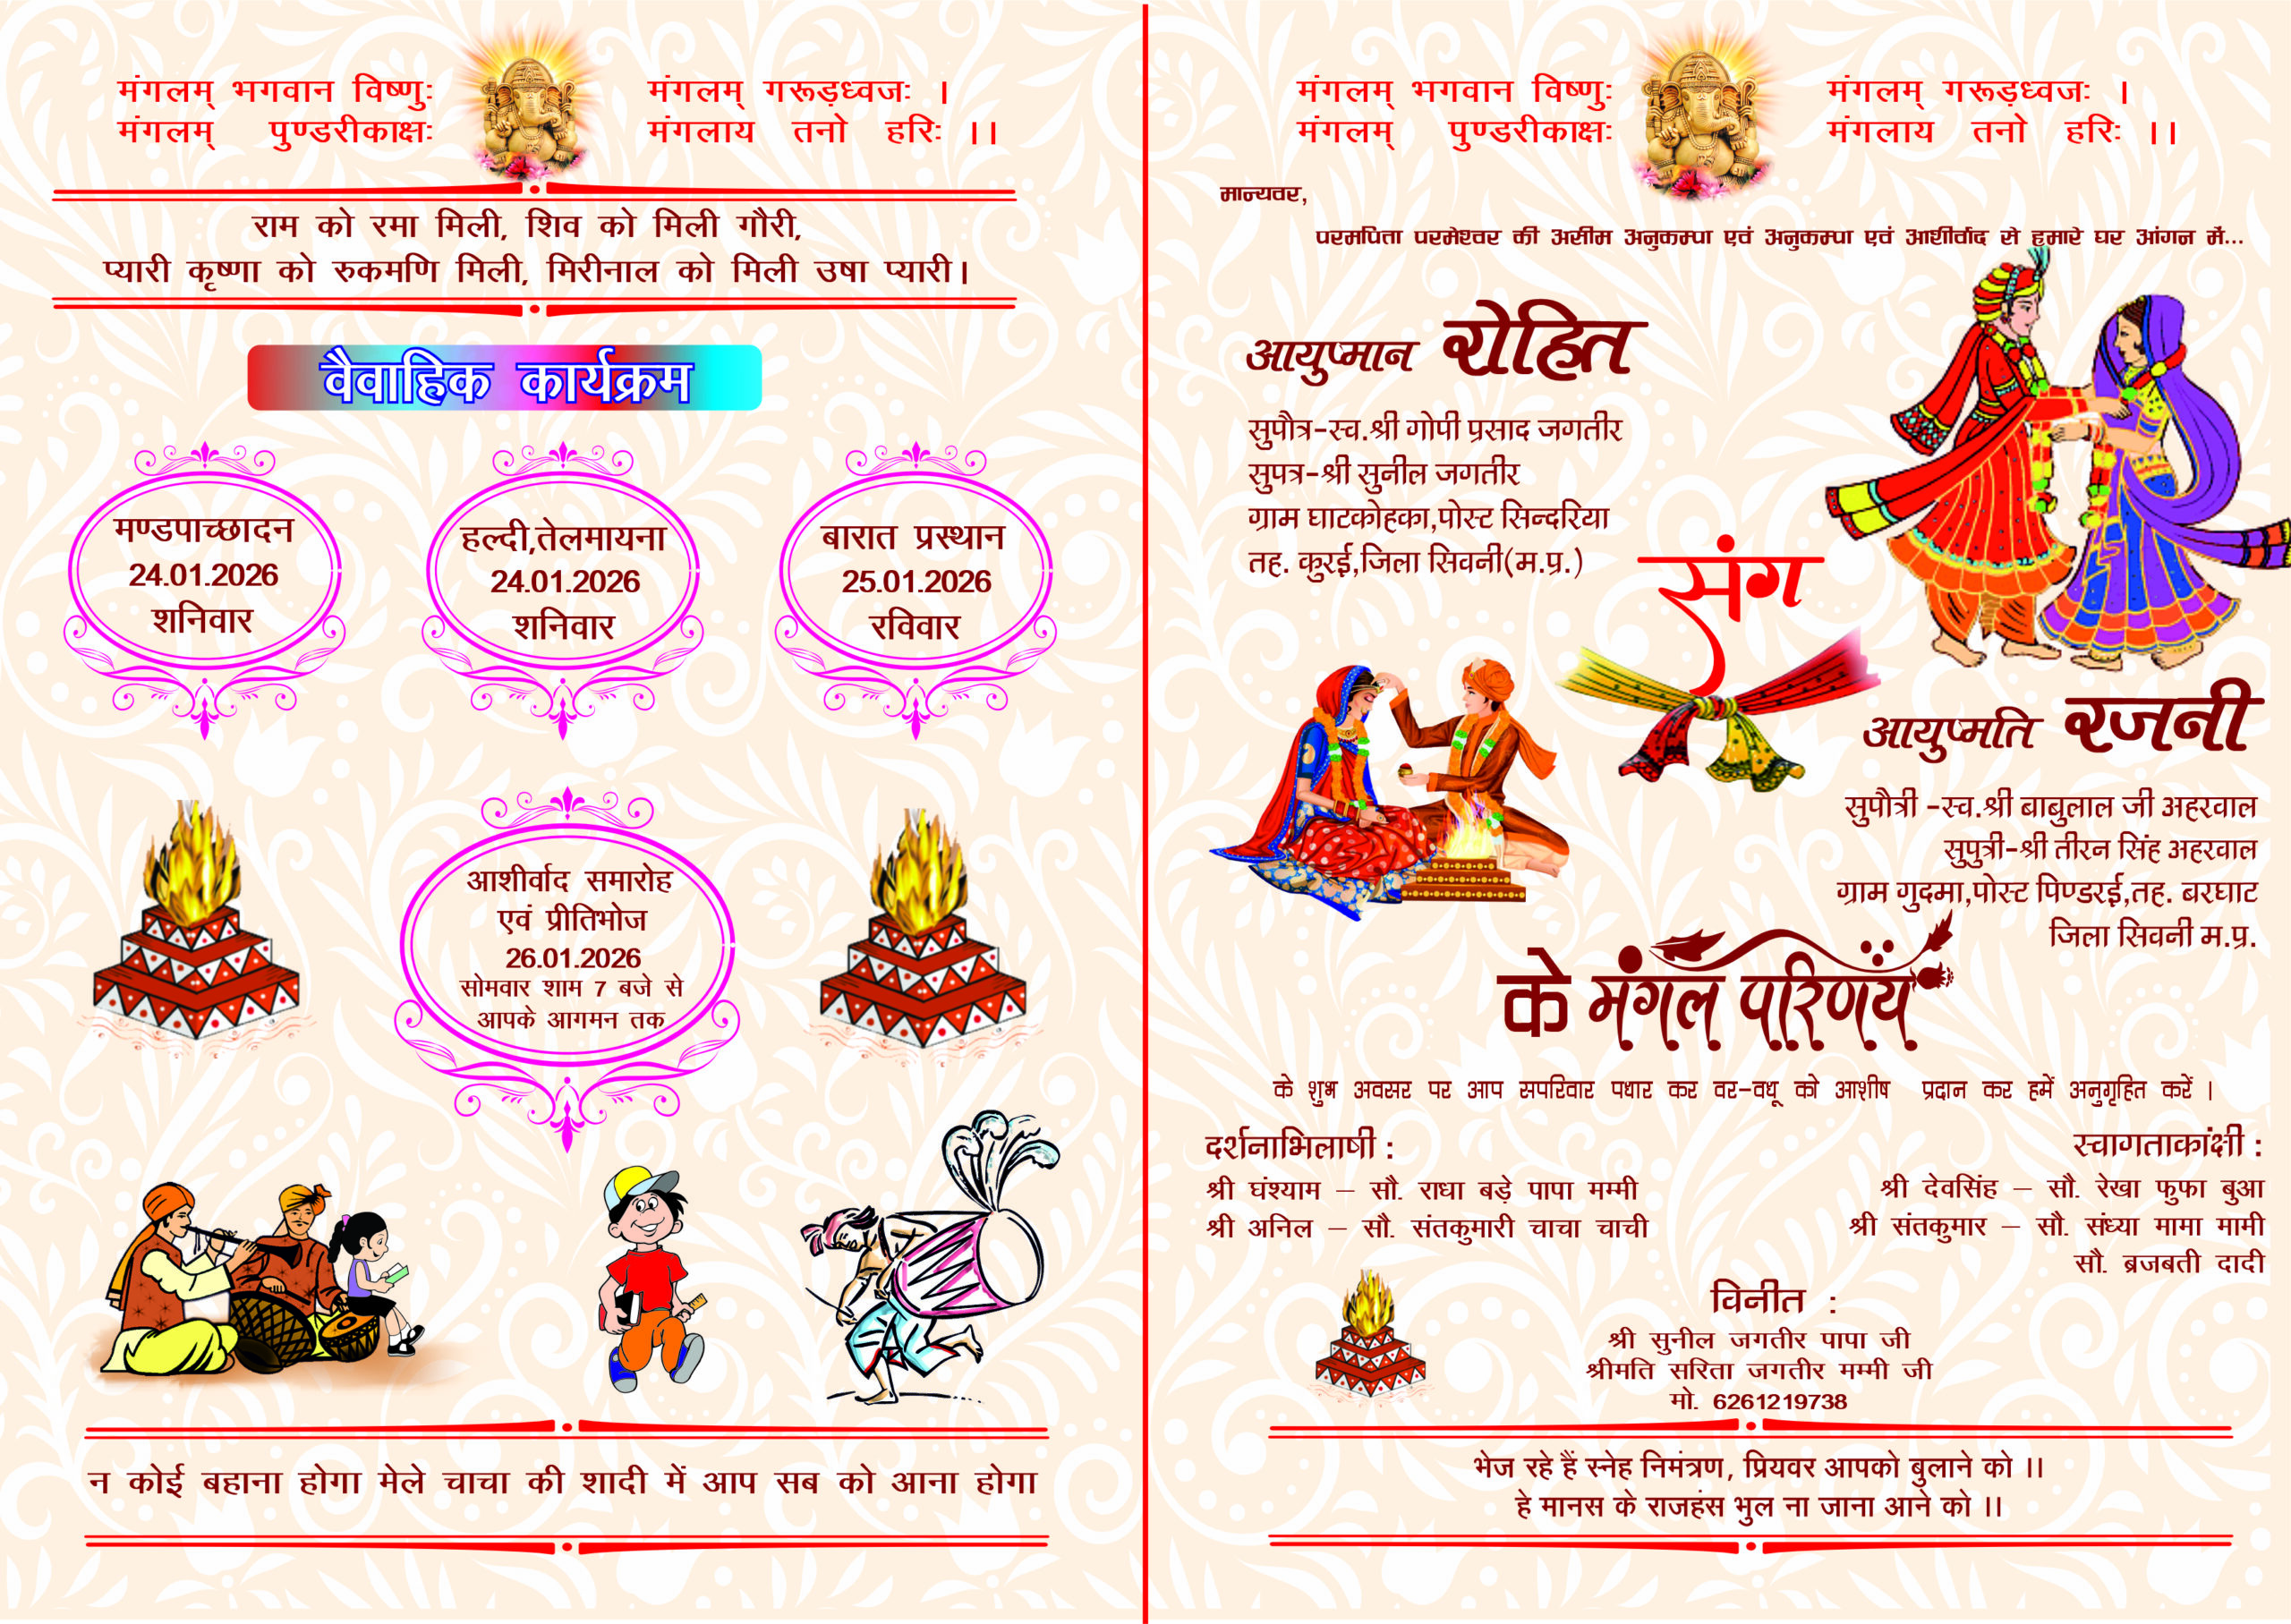 मंगलम् भगवान विष्णुः मंगलम् गरूड़ध्वजः ।
मंगलम् पुण्डरीकाक्षः मंगलाय तनो हरिः ।।
राम को रमा मिली, शिव को मिली गौरी,
प्यारी कृष्णा को रुकमणि मिली, मिरीनाल को मिली उषा प्यारी।
वैवाहिक कार्यक्रम
मण्डपाच्छादन
24.01.2026
शनिवार
हल्दी,तेलमायना
24.01.2026
शनिवार
बारात प्रस्थान
25.01.2026
रविवार
आशीर्वाद समारोह
एवं प्रीतिभोज
26.01.2026
सोमवार शाम 7 बजे से
आपके आगमन तक
न कोई बहाना होगा मेले चाचा की शादी में आप सब को आना होगा
मंगलम् भगवान विष्णुः मंगलम् गरूड़ध्वजः ।
मंगलम् पुण्डरीकाक्षः मंगलाय तनो हरिः ।।
मान्यवर,
परमपिता परमेश्वर की असीम अनुकम्पा एवं अनुकम्पा एवं आर्शीवाद से हमारे घर आंगन में...
आयुष्मान रोहित
सुपौत्र-स्व.श्री गोपी प्रसाद जगतीर
सुपत्र-श्री सुनील जगतीर
ग्राम घाटकोहका,पोस्ट सिन्दरिया
तह. कुरई,जिला सिवनी(म.प्र.)
संग
आयुष्मति रजनी
सुपौत्री -स्व.श्री बाबुलाल जी अहरवाल
सुपुत्री-श्री तीरन सिंह अहरवाल
ग्राम गुदमा,पोस्ट पिण्डरई,तह. बरघाट
जिला सिवनी म.प्र.
के मंगल परिणय
के शुभ अवसर पर आप सपरिवार पधार कर वर-वधू को आशीष प्रदान कर हमें अनुगृहित करें ।
दर्शनाभिलाषी :
श्री घंश्याम – सौ. राधा बड़े पापा मम्मी
श्री अनिल – सौ. संतकुमारी चाचा चाची
स्वागताकांक्षी :
श्री देवसिंह – सौ. रेखा फुफा बुआ
श्री संतकुमार – सौ. संध्या मामा मामी
सौ. ब्रजबती दादी
विनीत :
श्री सुनील जगतीर पापा जी
श्रीमति सरिता जगतीर मम्मी जी
मो. 6261219738
भेज रहे हैं स्नेह निमंत्रण, प्रियवर आपको बुलाने को ।।
हे मानस के राजहंस भुल ना जाना आने को ।।